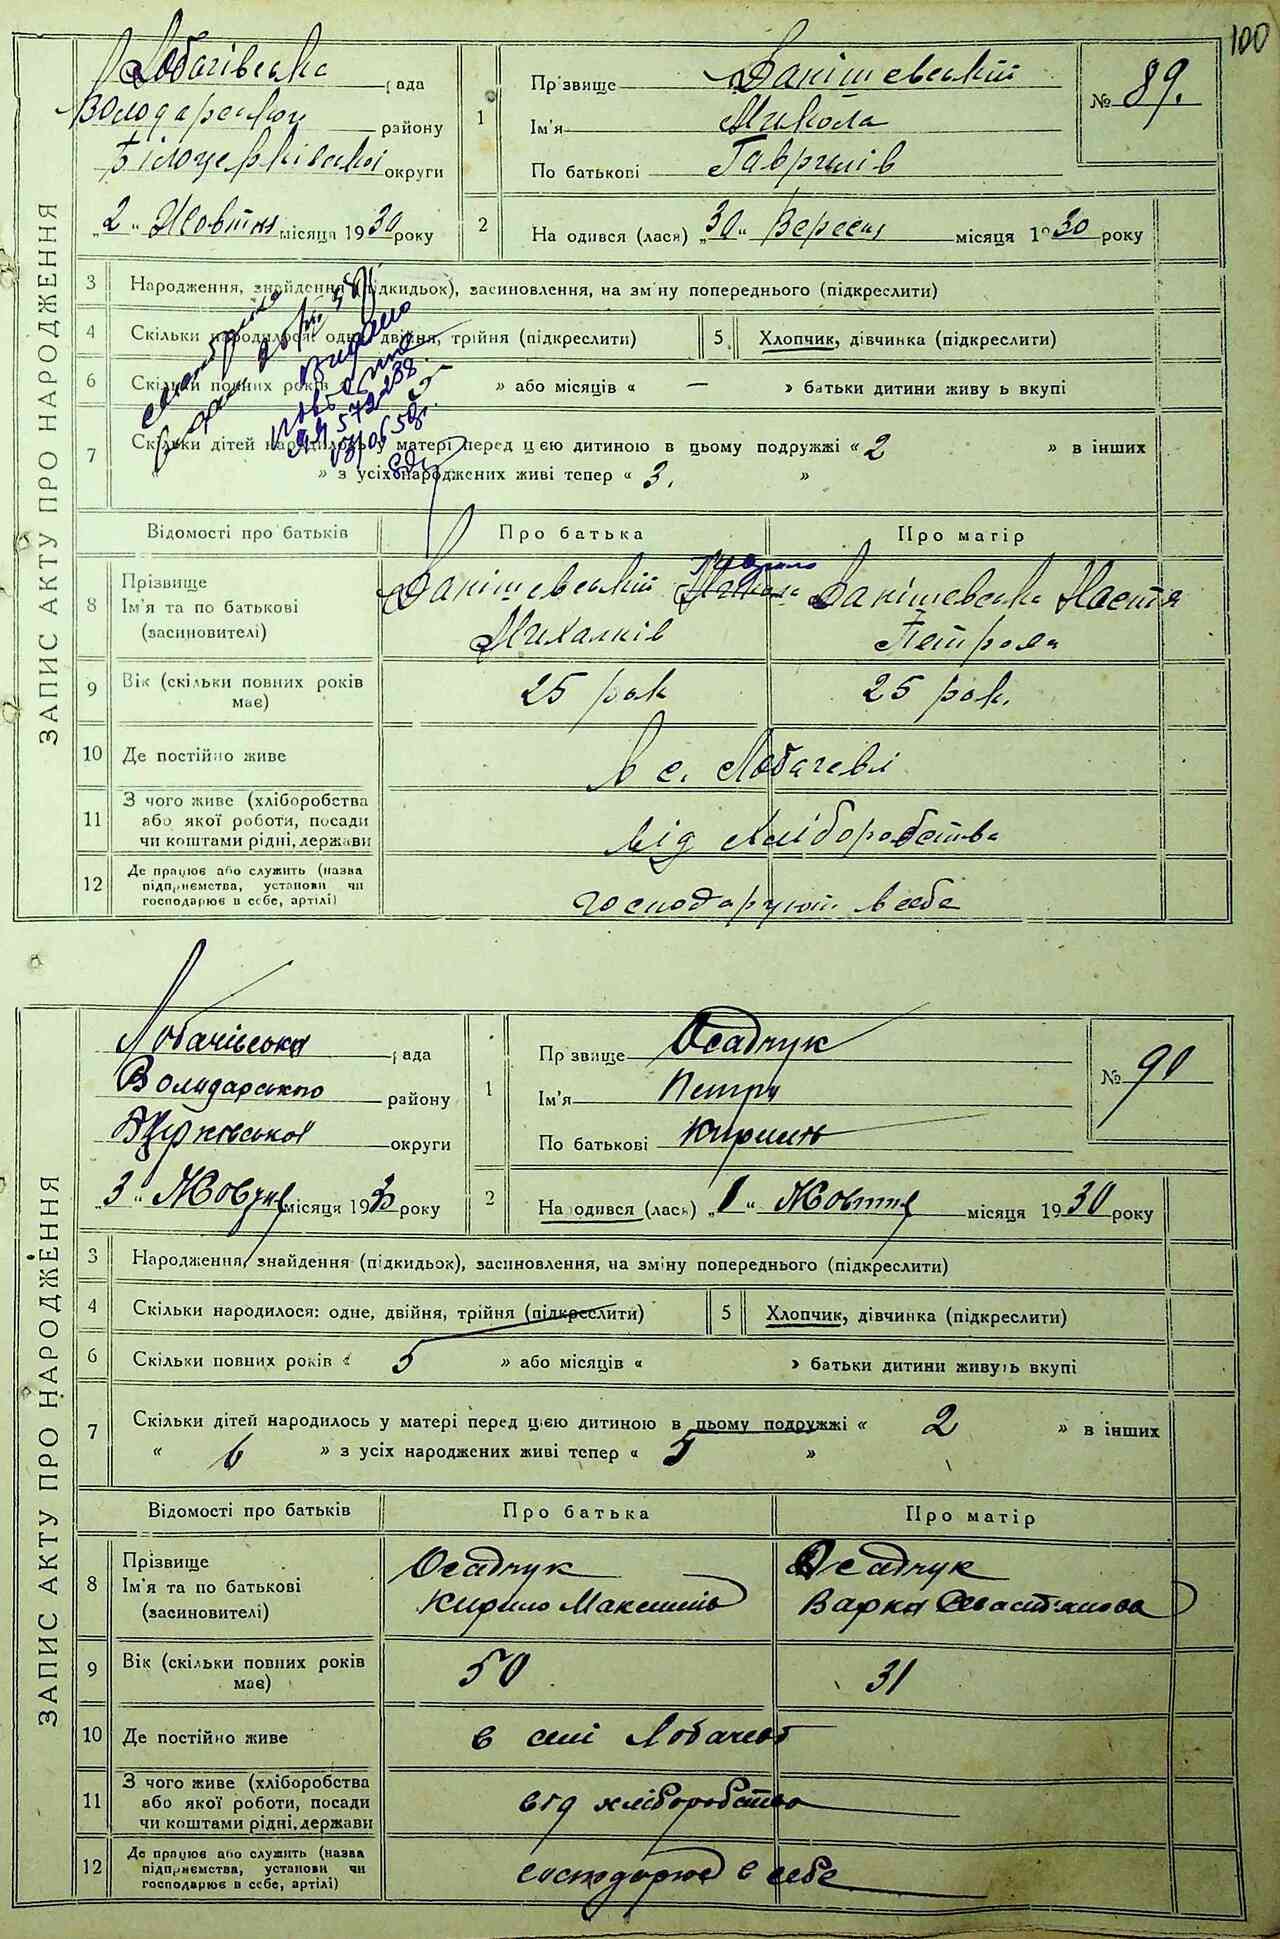 100
ЗАПИС АКТУ ПРО НАРОДЖЕННЯ
Лобачівська рада
Володарського району
Білоцерківської округи
„2“ Жовтня місяця 1930 року
1 Прізвище Данішевський
Ім'я Микола
По батькові Гаврилів
№ 89.
2 Народився (лася) „30“ Вересня місяця 1930 року
3 Народження, знайдення (підкидьок), засиновлення, на зміну попереднього (підкреслити)
4 Скільки народилося: одне, двійня, трійня (підкреслити)
5 Хлопчик, дівчинка (підкреслити)
6 Скільки повних років « » або місяців « — » батьки дитини живуть вкупі
7 Скільки дітей народилось у матері перед цією дитиною в цьому подружжі «2» в інших
» з усіх народжених живі тепер «3.»
Видано
повторне
572238
Відомості про батьків Про батька Про матір
8 Прізвище
Ім'я та по батькові
(засиновителі)
Гаврило
Данішевський Микола
Михалків
Данішевська Настя
Петрова
9 Вік (скільки повних років має) 25 рок 25 рок.
10 Де постійно живе В с. Лобачеві
11 З чого живе (хліборобства
або якої роботи, посади
чи коштами рідні, держави
Від Хліборобства
12 Де працює або служить (назва
підприємства, установи чи
господарює в себе, артілі)
господарюют в себе
ЗАПИС АКТУ ПРО НАРОДЖЕННЯ
Лобачівська рада
Володарського району
Бцерківської округи
„3“ Жовтня місяця 1930 року
1 Прізвище Осадчук
Ім'я Петро
По батькові Кирилів
№ 90
2 Народився (лася) „1“ Жовтня місяця 1930 року
3 Народження, знайдення (підкидьок), засиновлення, на зміну попереднього (підкреслити)
4 Скільки народилося: одне, двійня, трійня (підкреслити)
5 Хлопчик, дівчинка (підкреслити)
6 Скільки повних років « 5 » або місяців « » батьки дитини живуть вкупі
7 Скільки дітей народилось у матері перед цією дитиною в цьому подружжі « 2 » в інших
« 6 » з усіх народжених живі тепер « 5 »
Відомості про батьків Про батька Про матір
8 Прізвище
Ім'я та по батькові
(засиновителі)
Осадчук
Кирило Максимів
Осадчук
Варка Севастіянова
9 Вік (скільки повних років має) 50 31
10 Де постійно живе в селі Лобачеві
11 З чого живе (хліборобства
або якої роботи, посади
чи коштами рідні, держави
від хліборобства
12 Де працює або служить (назва
підприємства, установи чи
господарює в себе, артілі)
господарює в себе